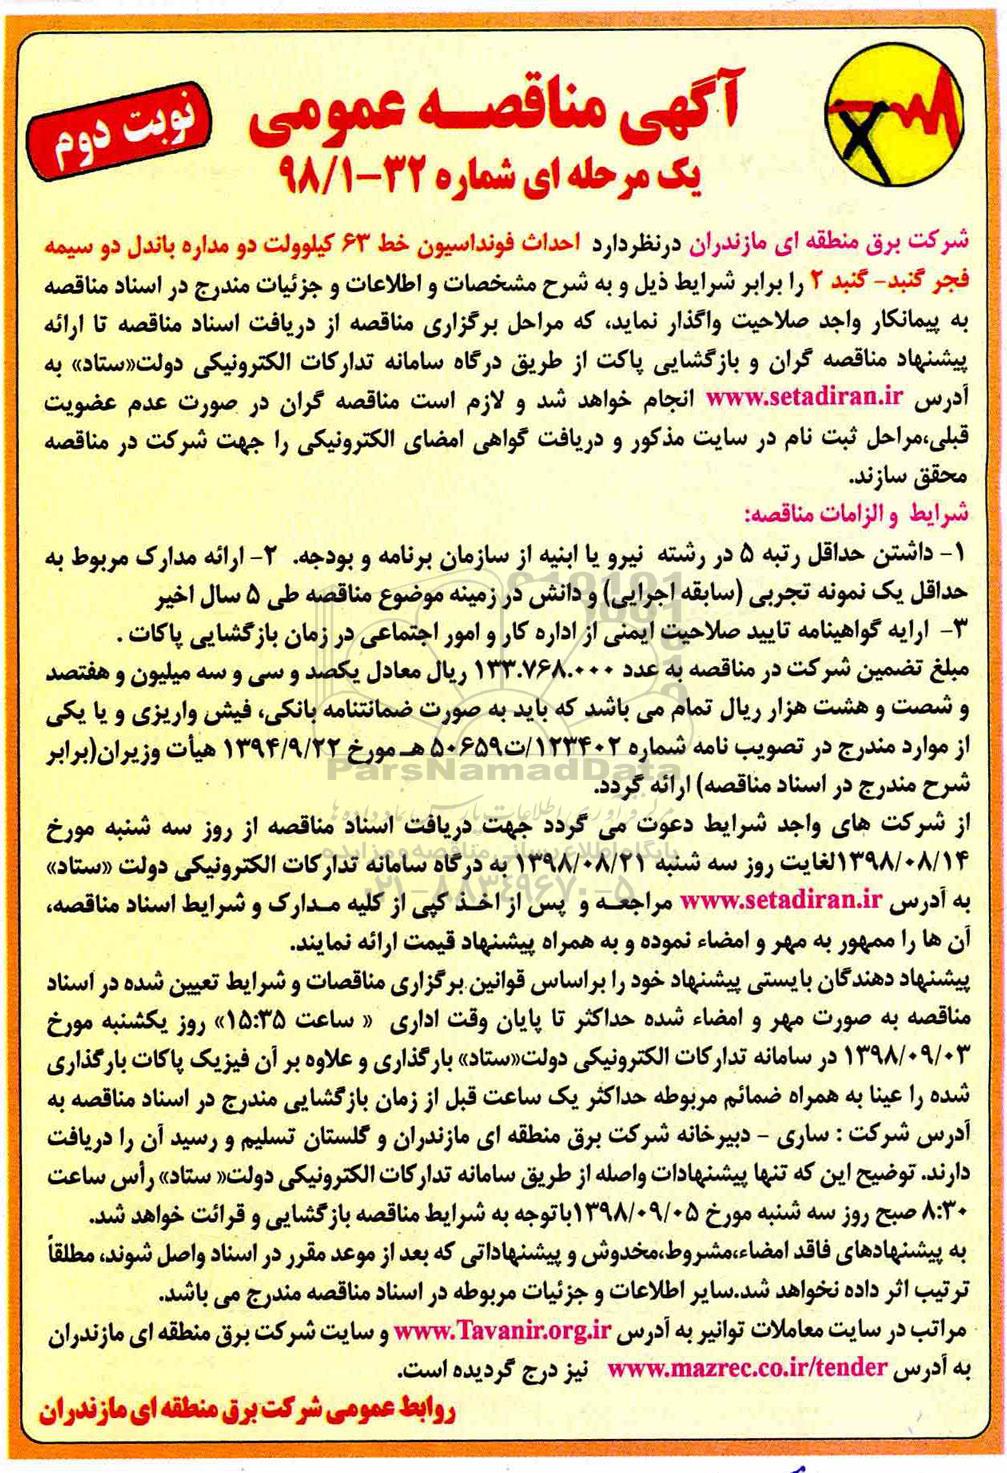 آگهی مناقصه عمومی
نوبت دوم
یک مرحله ای شماره ۳۲-۹۸/۱
شرکت برق منطقه ای مازندران درنظردارد احداث فونداسیون خط ۶۳ کیلوولت دو مداره باندل دو سیمه
فجر گنبد- گنبد ۲ را برابر شرایط ذیل و به شرح مشخصات و اطلاعات و جزئیات مندرج در اسناد مناقصه
به پیمانکار واجد صلاحیت واگذار نماید، که مراحل برگزاری مناقصه از دریافت اسناد مناقصه تا ارائه
پیشنهاد مناقصه گران و بازگشایی پاکت از طریق درگاه سامانه تدارکات الکترونیکی دولت«ستاد» به
آدرس www.setadiran.ir انجام خواهد شد و لازم است مناقصه گران در صورت عدم عضویت
قبلی،مراحل ثبت نام در سایت مذکور و دریافت گواهی امضای الکترونیکی را جهت شرکت در مناقصه
محقق سازند.
شرایط و الزامات مناقصه:
۱- داشتن حداقل رتبه ۵ در رشته نیرو یا ابنیه از سازمان برنامه و بودجه. ۲- ارائه مدارک مربوط به
حداقل یک نمونه تجربی (سابقه اجرایی) و دانش در زمینه موضوع مناقصه طی ۵ سال اخیر
۳- ارایه گواهینامه تایید صلاحیت ایمنی از اداره کار و امور اجتماعی در زمان بازگشایی پاکات .
مبلغ تضمین شرکت در مناقصه به عدد ۱۳۳.۷۶۸.۰۰۰ ریال معادل یکصد و سی و سه میلیون و هفتصد
و شصت و هشت هزار ریال تمام می باشد که باید به صورت ضمانتنامه بانکی، فیش واریزی و یا یکی
از موارد مندرج در تصویب نامه شماره ۱۲۳۴۰۲/ت۵۰۶۵۹ هـ مورخ ۱۳۹۴/۹/۲۲ هیأت وزیران(برابر
شرح مندرج در اسناد مناقصه) ارائه گردد.
از شرکت های واجد شرایط دعوت می گردد جهت دریافت اسناد مناقصه از روز سه شنبه مورخ
۱۳۹۸/۰۸/۱۴لغایت روز سه شنبه ۱۳۹۸/۰۸/۲۱ به درگاه سامانه تدارکات الکترونیکی دولت «ستاد»
به آدرس www.setadiran.ir مراجعه و پس از اخذ کپی از کلیه مدارک و شرایط اسناد مناقصه،
آن ها را ممهور به مهر و امضاء نموده و به همراه پیشنهاد قیمت ارائه نمایند.
پیشنهاد دهندگان بایستی پیشنهاد خود را براساس قوانین برگزاری مناقصات و شرایط تعیین شده در اسناد
مناقصه به صورت مهر و امضاء شده حداکثر تا پایان وقت اداری « ساعت ۱۵:۳۵» روز یکشنبه مورخ
۱۳۹۸/۰۹/۰۳ در سامانه تدارکات الکترونیکی دولت«ستاد» بارگذاری و علاوه بر آن فیزیک پاکات بارگذاری
شده را عینا به همراه ضمائم مربوطه حداکثر یک ساعت قبل از زمان بازگشایی مندرج در اسناد مناقصه به
آدرس شرکت : ساری - دبیرخانه شرکت برق منطقه ای مازندران و گلستان تسلیم و رسید آن را دریافت
دارند. توضیح این که تنها پیشنهادات واصله از طریق سامانه تدارکات الکترونیکی دولت« ستاد» رأس ساعت
۸:۳۰ صبح روز سه شنبه مورخ ۱۳۹۸/۰۹/۰۵باتوجه به شرایط مناقصه بازگشایی و قرائت خواهد شد.
به پیشنهادهای فاقد امضاء،مشروط،مخدوش و پیشنهاداتی که بعد از موعد مقرر در اسناد واصل شوند، مطلقاً
ترتیب اثر داده نخواهد شد.سایر اطلاعات و جزئیات مربوطه در اسناد مناقصه مندرج می باشد.
مراتب در سایت معاملات توانیر به آدرس www.Tavanir.org.ir و سایت شرکت برق منطقه ای مازندران
به آدرس www.mazrec.co.ir/tender نیز درج گردیده است.
روابط عمومی شرکت برق منطقه ای مازندران
ParsNamadData
پایگاه اطلاع رسانی مناقصه و مزایده
۰۲۱-۸۸۳۴۹۶۷۰-۵